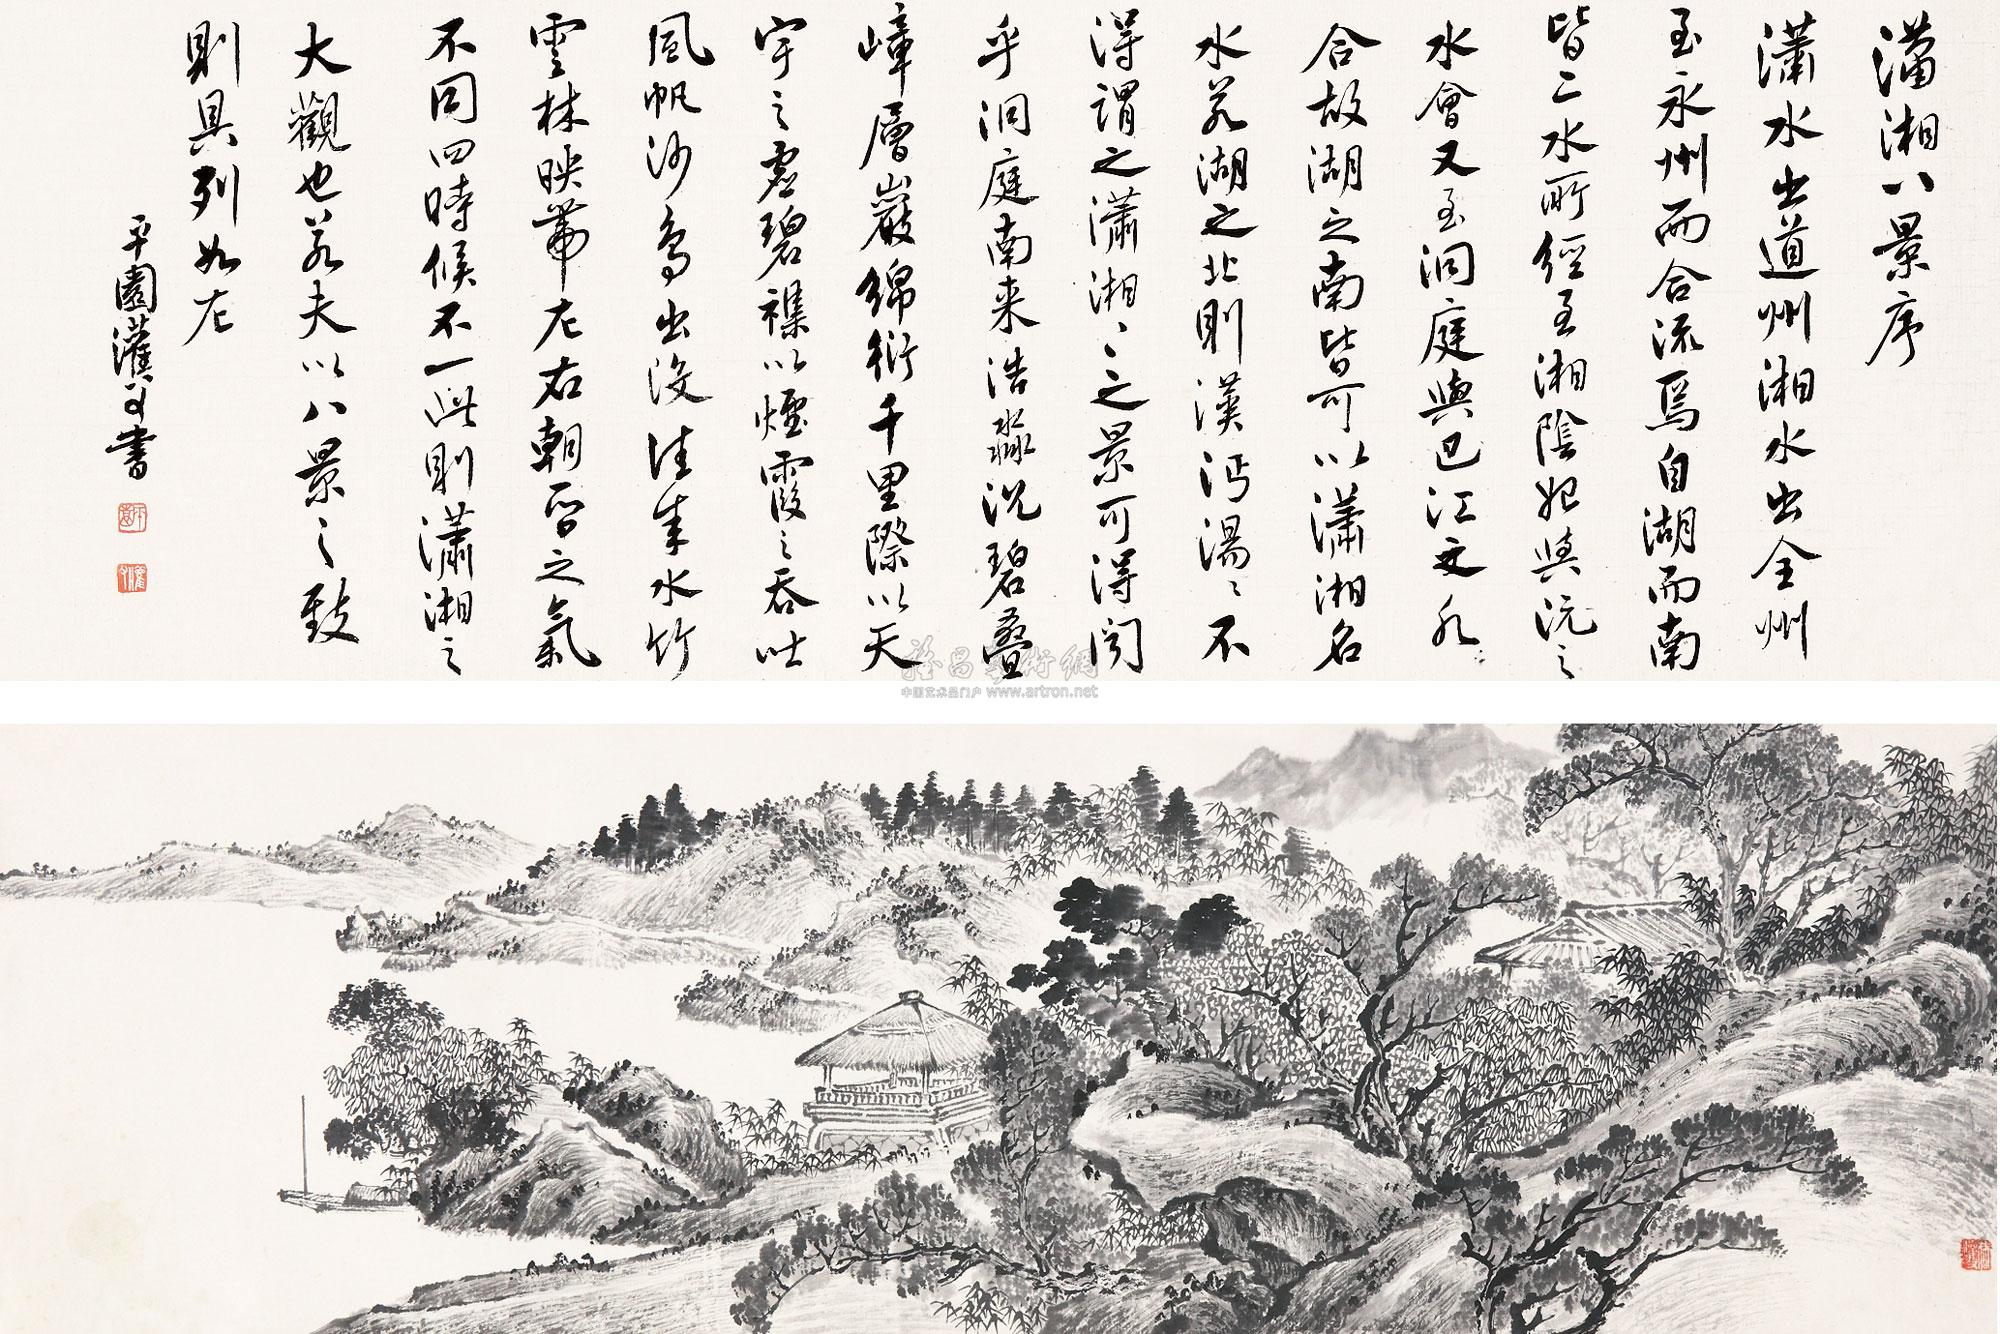 瀟湘八景序
瀟水出道州湘水出全州
至永州而合流焉自湖而南
皆二水所經至湘陰妃與沅之
水會又至洞庭與巴江之水
合故湖之南皆可以瀟湘名
水若湖之北則漢沔湯湯不
得謂之瀟湘湘之景可得聞
乎洞庭南来浩淼沉碧叠
嶂層巖綿衍千里際以天
宇之虛碧襍以煙霞之吞吐
風帆沙鳥出没往来水竹
雲林映帶左右朝昏之氣
不同四時候不一此則瀟湘之
大觀也若夫以八景之致
則具列如左
平園灌叟書
中国艺术品门户 www.artron.net